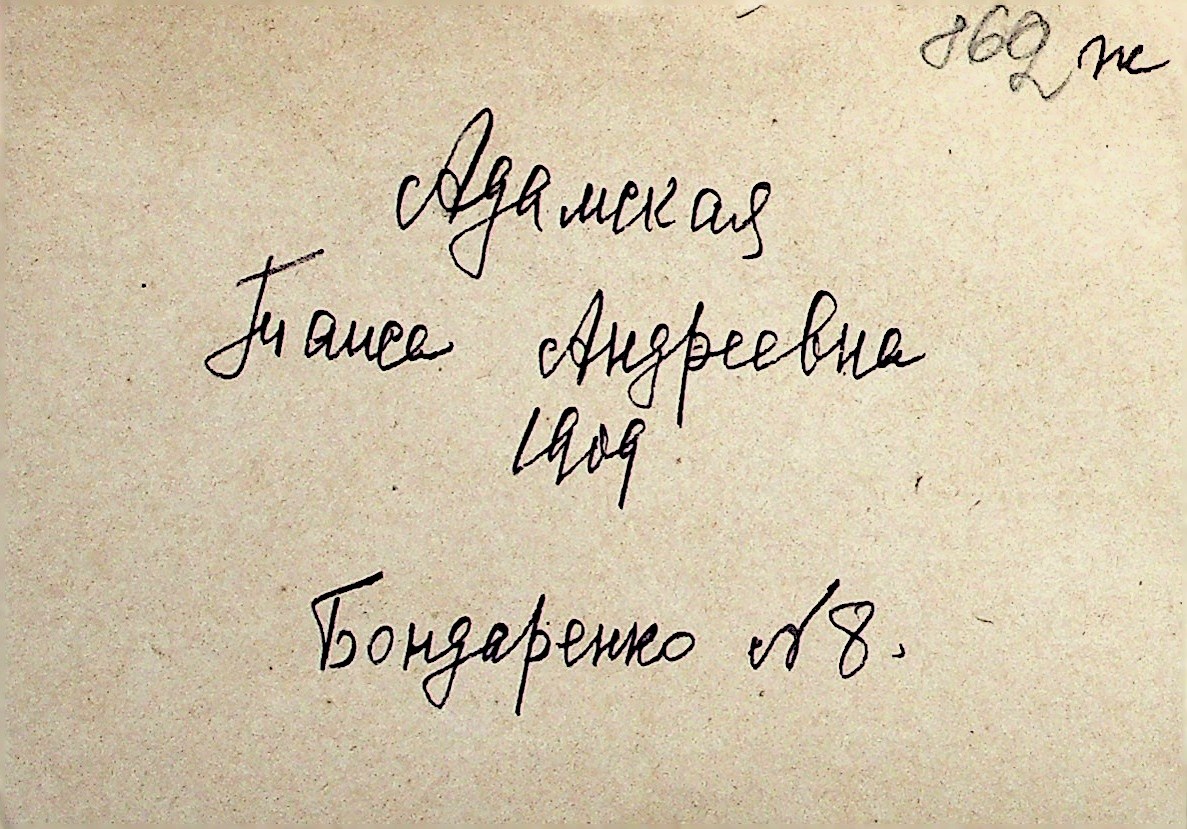 Адамская
Таиса Андреевна
1909
Бондаренко № 8.